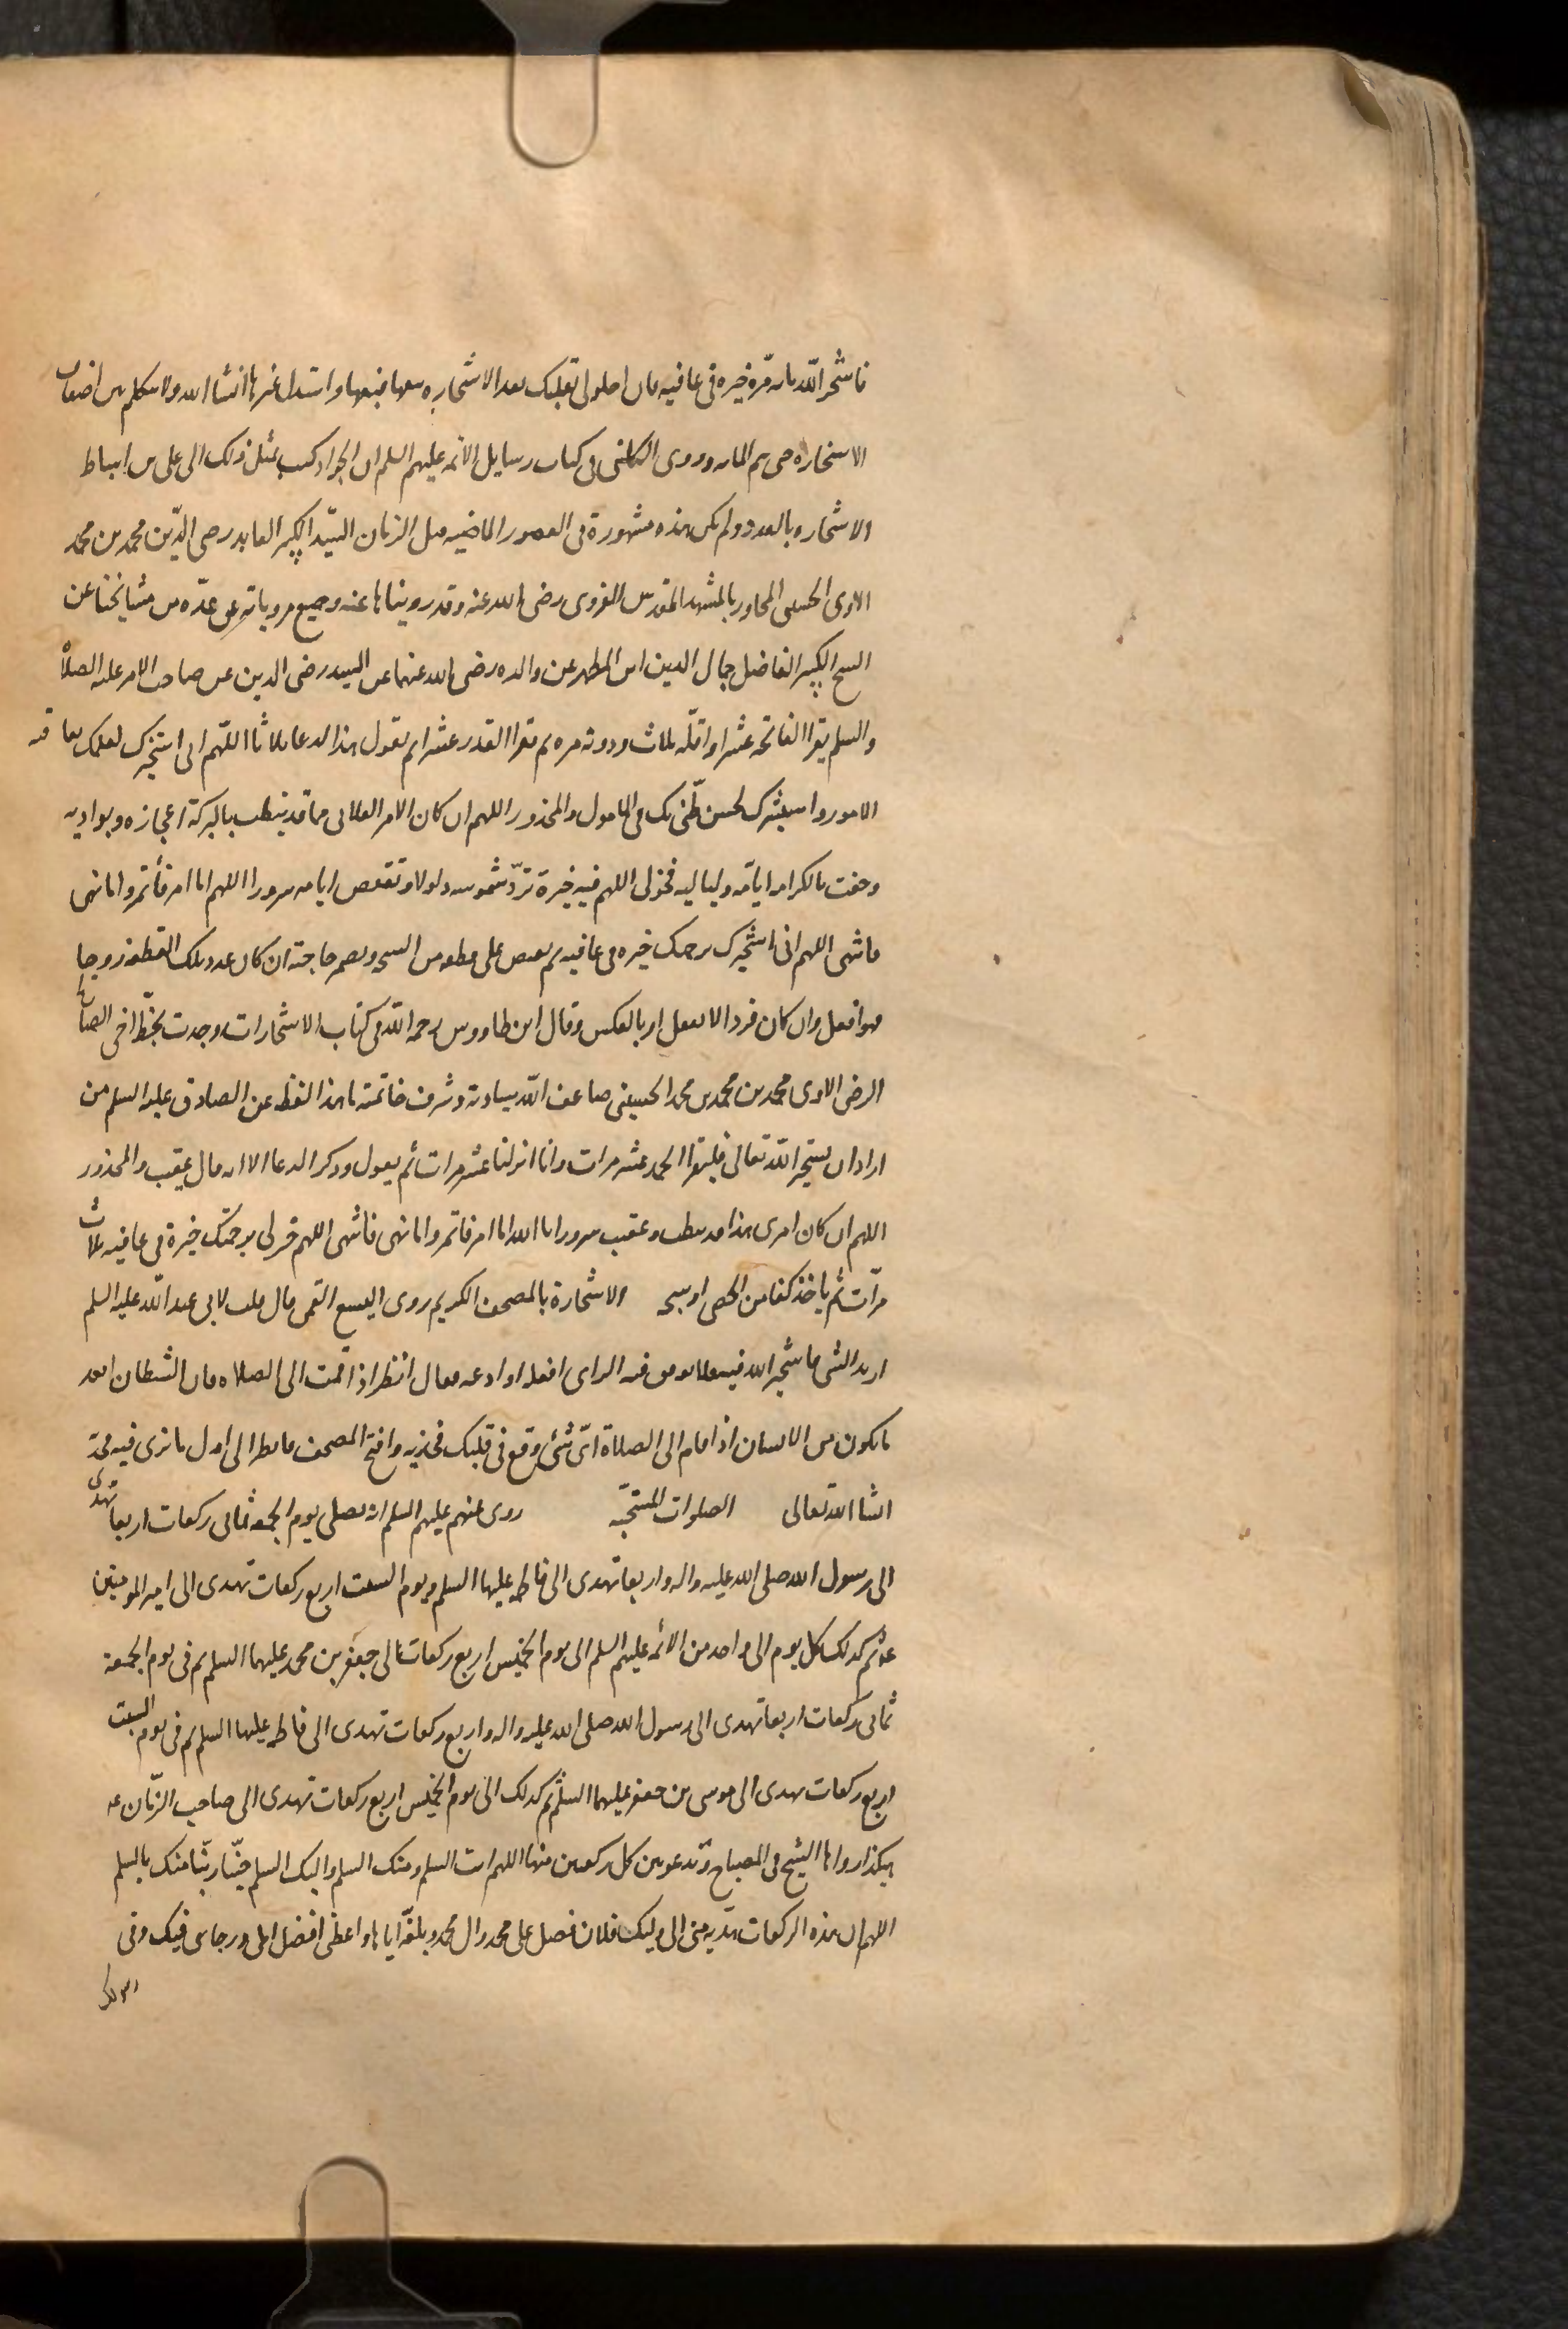 فاستخر الله مائة مرة خيرة في عافيه فان احلولى بقلبك بعد الاستخاره بيعها فبعها واستبدل غيرها انشا الله ولا تتكلم بين اضعاف
الاستخاره حتى تتم المائه وروى الكلينى فى كتاب رسايل الائمه عليهم السلم ان الجواد كتب بمثل ذلك الى على بن اسباط
الاستخاره بالعدد ولم يكن هذه مشهورة فى العصور الماضيه قبل الزمان السيّد الكبير العابد رضى الدّين محمد بن محمد
الاوى الحسينى المجاور بالمشهد المقدس الغروى رضى الله عنه وقد رويناها عنه وجميع مروياته عن عدّه من مشايخنا عن
الشيخ الكبير الفاضل جمال الدين ابن المطهر عن والده رضى الله عنهما عن السيد رضى الدين عن صاحب الامر عليه الصلاة
والسلم يقرا الفاتحه عشرا واقلّه ثلاث ودونه مره ثم يقرا القدر عشرا ثم يقول هذا الدعا ثلاثا اللّهم انى استخيرك لعلمك بعاقبه
الامور واستشيرك لحسن ظّنى بك فى المامول والمحذور اللهم ان كان الامر الفلانى مما قد نيطت بالبركة اعجازه وبواديه
وحفت بالكرامه ايامّه ولياليه فخر لى اللهم فيه خيرة تردّ شموسه ذلولا وتقعض ايامه سرورا اللهم اما امر فأتمر واما نهى
فانتهى اللهم انى استخيرك برحمتك خيره فى عافيه ثم يقبض على قطعه من السبحه ويضمر حاجته ان كان عدد تلك القطعه زوجا
فهو افعل وان كان فردا لا تفعل او بالعكس وقال ابن طاووس رحمه الله فى كتاب الاستخارات وجدت بخطّ اخى الصالح
الرضى الاوى محمد بن محمد بن محمد الحسينى ضاعف الله سيادته وشرف خاتمته ما هذا لفظه عن الصادق عليه السلم من
اراد ان يستخير الله تعالى فليقرا الحمد عشر مرات وانا انزلنا عشر مرات ثم يقول وذكر الدعا الا انه قال عقيب والمحذور
اللهم ان كان امرى هذا قد نيطت وعقب سرورا يا الله اما امر فاتمر واما نهى فانتهى اللهم خر لى برحمتك خيرة فى عافيه ثلاث
مرّات ثم ياخذ كفا من الحصى او سبحه الاستخارة بالمصحف الكريم روى اليسع القمى قال قلت لابى عبد الله عليه السلم
اريد الشى فاستخير الله فيه فلا يوفق فيه الراى افعله او ادعه فقال انظر اذا قمت الى الصلاه فان الشيطان ابعد
ما يكون من الانسان اذا قام الى الصلاة اىّ شئ وقع فى قلبك فخذ به وافتح المصحف فانظر الى اول ما ترى فيه فخذ به
انشا الله تعالى الصلوات المستحبّه روى عنهم عليهم السلم انه يصلى يوم الجمعه ثمانى ركعات اربعا تهدى
الى رسول الله صلى الله عليه واله واربعا تهدى الى فاطمه عليها السلم ويوم السبت اربع ركعات تهدى الى امير المومنين
ع ثم كذلك كل يوم الى واحد من الائمه عليهم السلم الى يوم الخميس اربع ركعات الى جعفر بن محمد عليهما السلم ثم فى يوم الجمعة
ثمانى ركعات اربعا تهدى الى رسول الله صلى الله عليه واله واربع ركعات تهدى الى فاطمه عليها السلم ثم فى يوم السبت
اربع ركعات تهدى الى موسى بن جعفر عليهما السلم ثم كذلك الى يوم الخميس اربع ركعات تهدى الى صاحب الزّمان ع
هكذا رواها الشيخ فى المصباح وتدعو بين كل ركعتين منها اللهم انت السلم ومنك السلم واليك السلم حيّنا ربّنا منك بالسلم
اللهم ان هذه الركعات هدّيه منى الى وليك فلان فصل على محمد وال محمد وبلغّه اياها واعطنى افضل املى ورجاى فيك وفى